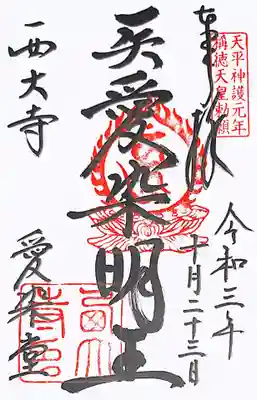 奉拝
天平神護元年
稱徳天皇勅願
令和三年
十月二十三日
天愛染明王
西大寺
愛染堂